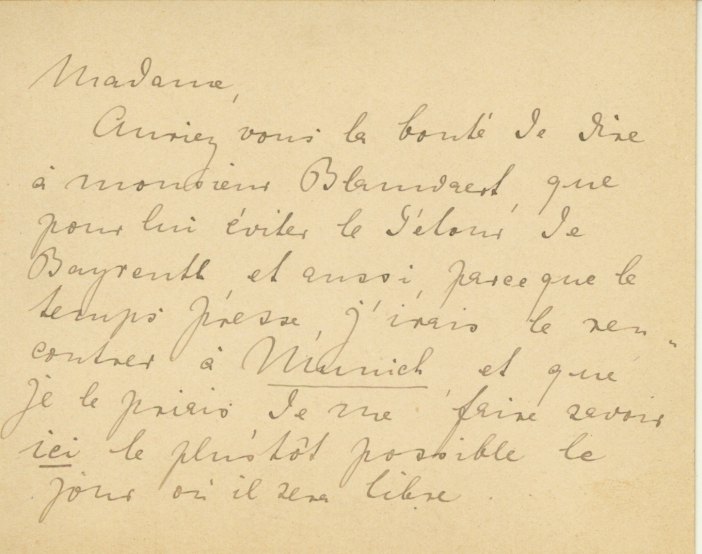 Madame,
Auriez vous la bonté de dire
à monsieur Blauwaert, que
pour lui éviter le détour de
Bayreuth et aussi parce que le
temps presse, j'irais le ren"
contrer à Munich et que
je le priais de me faire savoir
ici le plustôt possible le
jour où il sera libre.